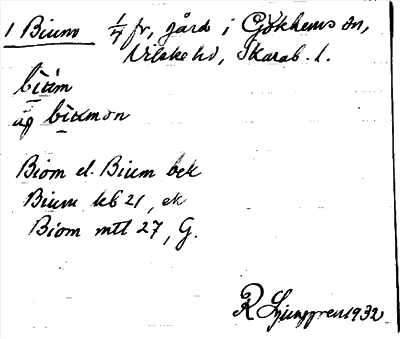 1 Bium 1/4 fr, gård i Gökhems sn,
Vilske hd, Skarab. l.
biùm
på biùmon
Biom el. Bium bek
Bium kb 21, ek
Biom mtl 27, G.
R Ljunggren 1932